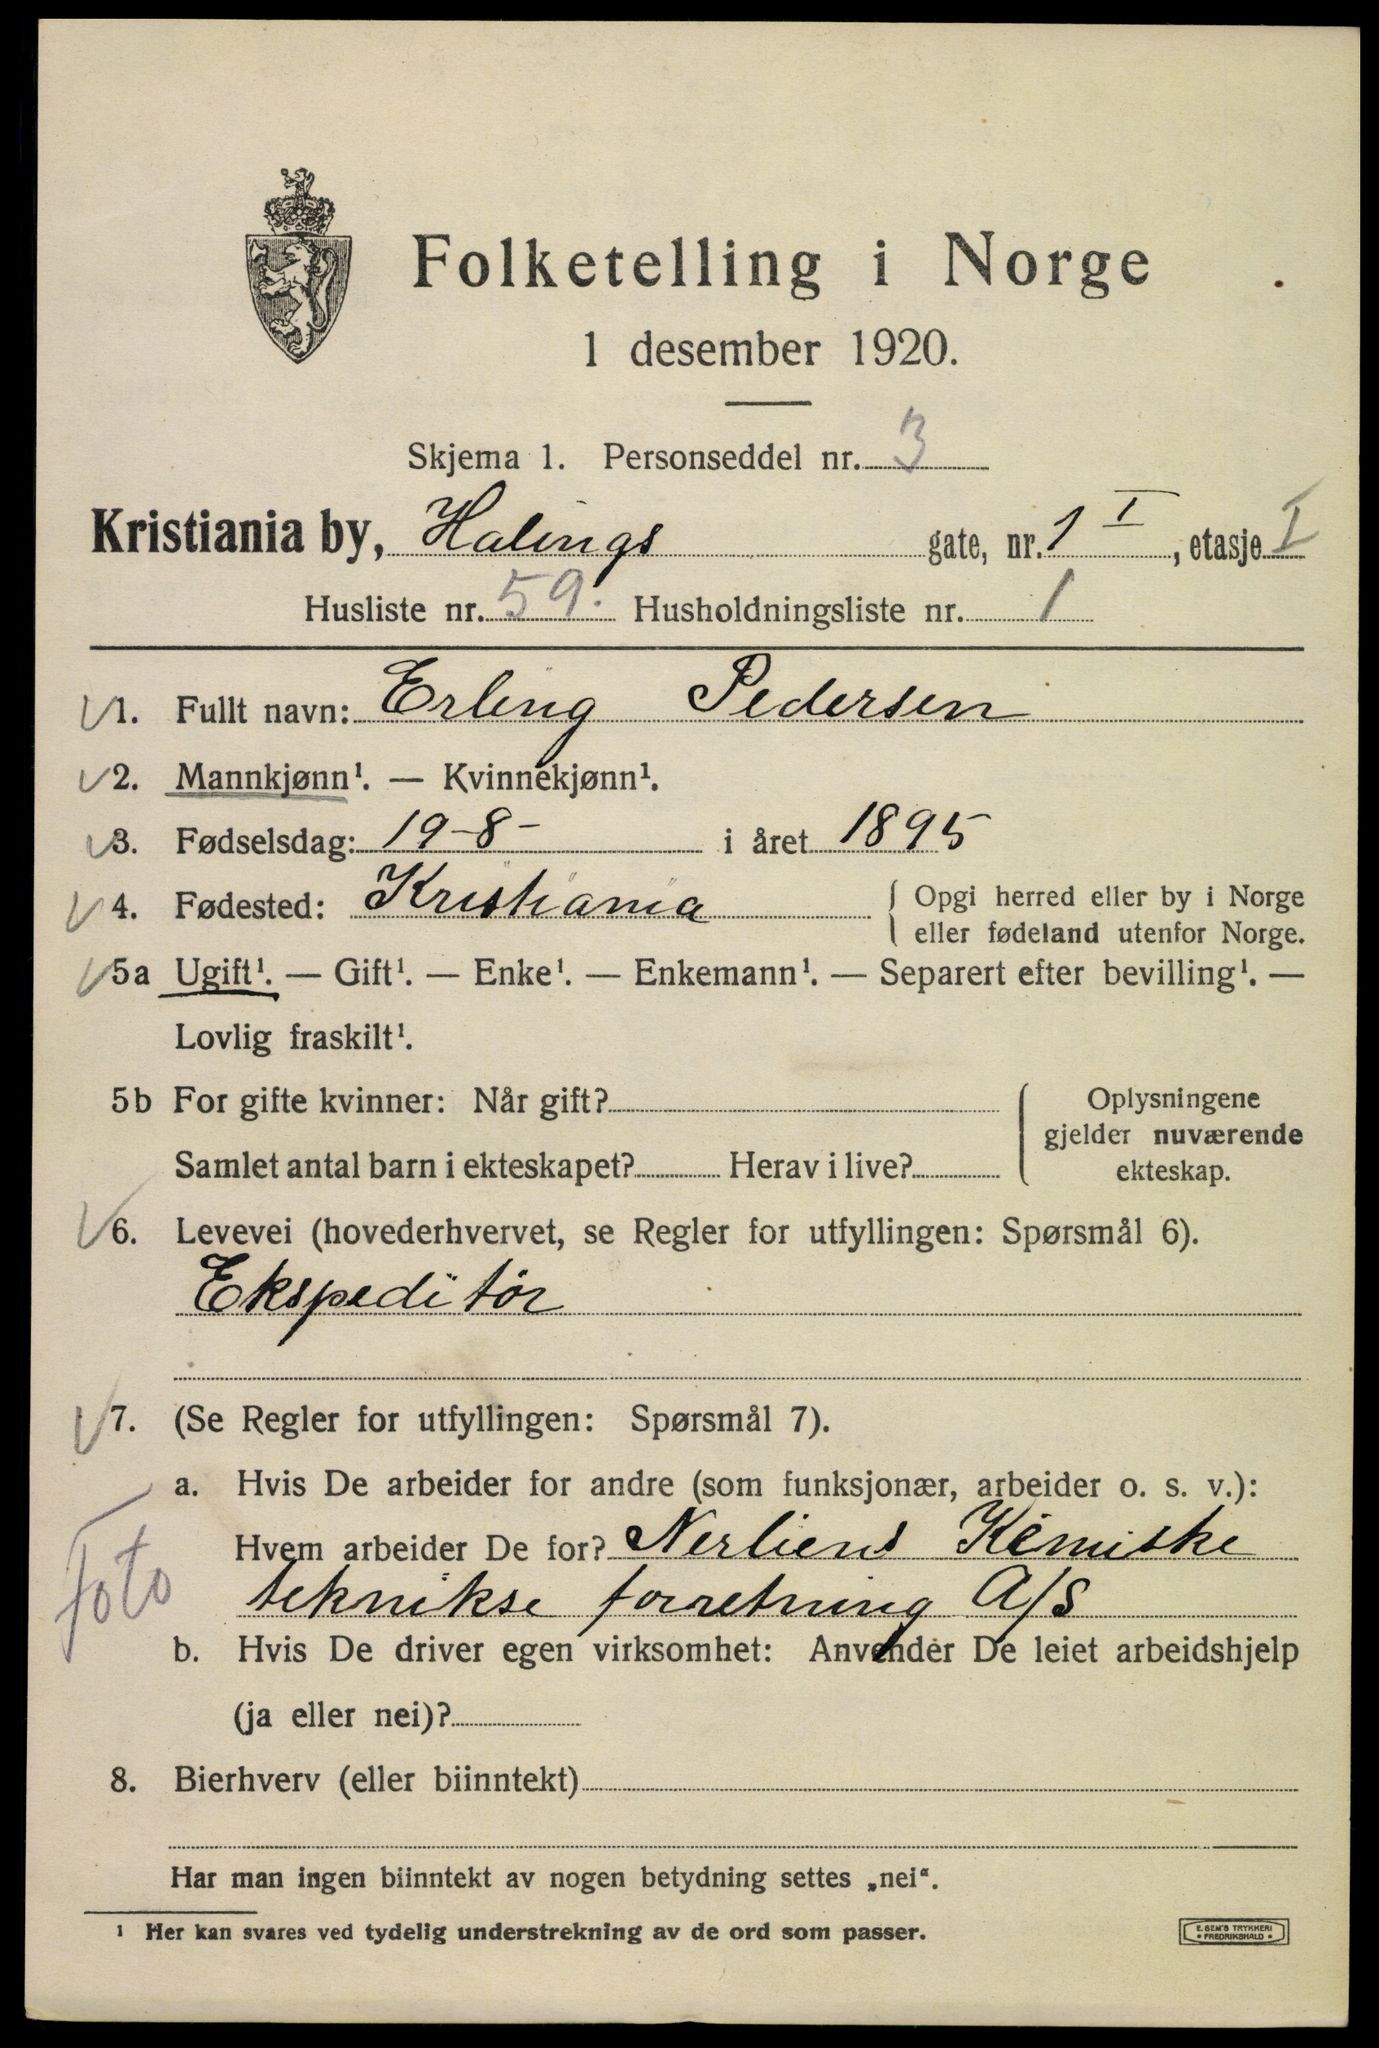 Folketelling i Norge
1 desember 1920.
Skjema 1. Personseddel nr. 3
Kristiania by, Halings gate, nr. 1 I, etasje I
Husliste nr. 59. Husholdningsliste nr. 1
1. Fullt navn: Erling Pedersen
2. Mannkjønn¹. — Kvinnekjønn¹.
3. Fødselsdag: 19-8- i året 1895
4. Fødested: Kristiania { Opgi herred eller by i Norge
eller fødeland utenfor Norge.
5a Ugift¹. — Gift¹. — Enke¹. — Enkemann¹. — Separert efter bevilling¹. —
Lovlig fraskilt¹.
5b For gifte kvinner: Når gift? { Oplysningene
gjelder nuværende
Samlet antal barn i ekteskapet? Herav i live? ekteskap.
6. Levevei (hovederhvervet, se Regler for utfyllingen: Spørsmål 6).
Ekspeditør
7. (Se Regler for utfyllingen: Spørsmål 7).
a. Hvis De arbeider for andre (som funksjonær, arbeider o. s. v.):
Hvem arbeider De for? Nerliens Kemiske
teknikse forretning A/S
Foto
b. Hvis De driver egen virksomhet: Anvender De leiet arbeidshjelp
(ja eller nei)?
8. Bierhverv (eller biinntekt)
Har man ingen biinntekt av nogen betydning settes „nei“.
¹ Her kan svares ved tydelig understrekning av de ord som passer.
E. SEM'S TRYKKERI
* FREDRIKSHALD *